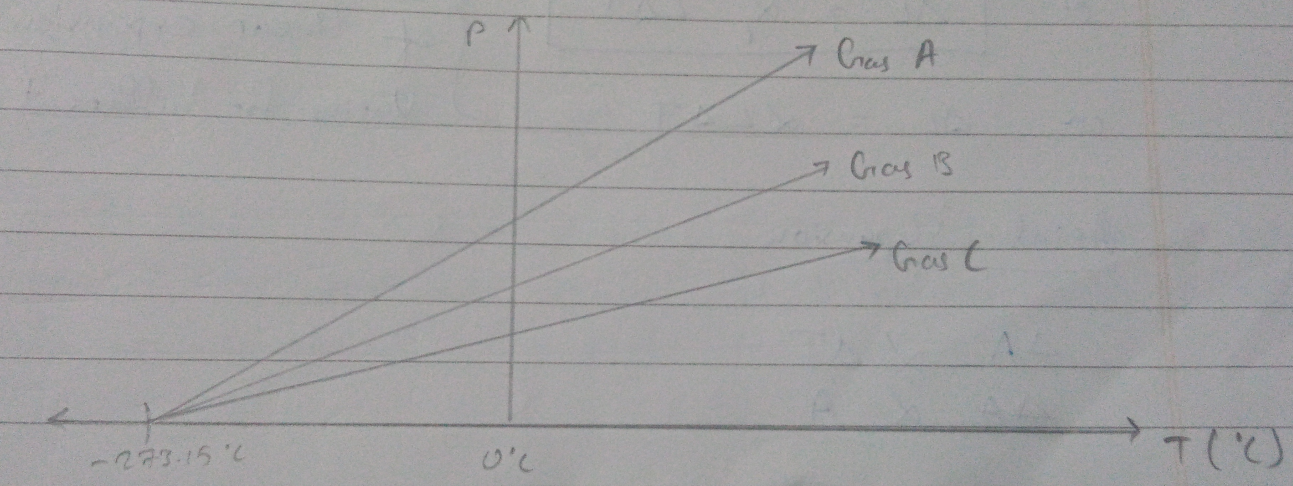 P
Gas A
Gas B
Gas C
-273.15°C
0°C
T (°C)